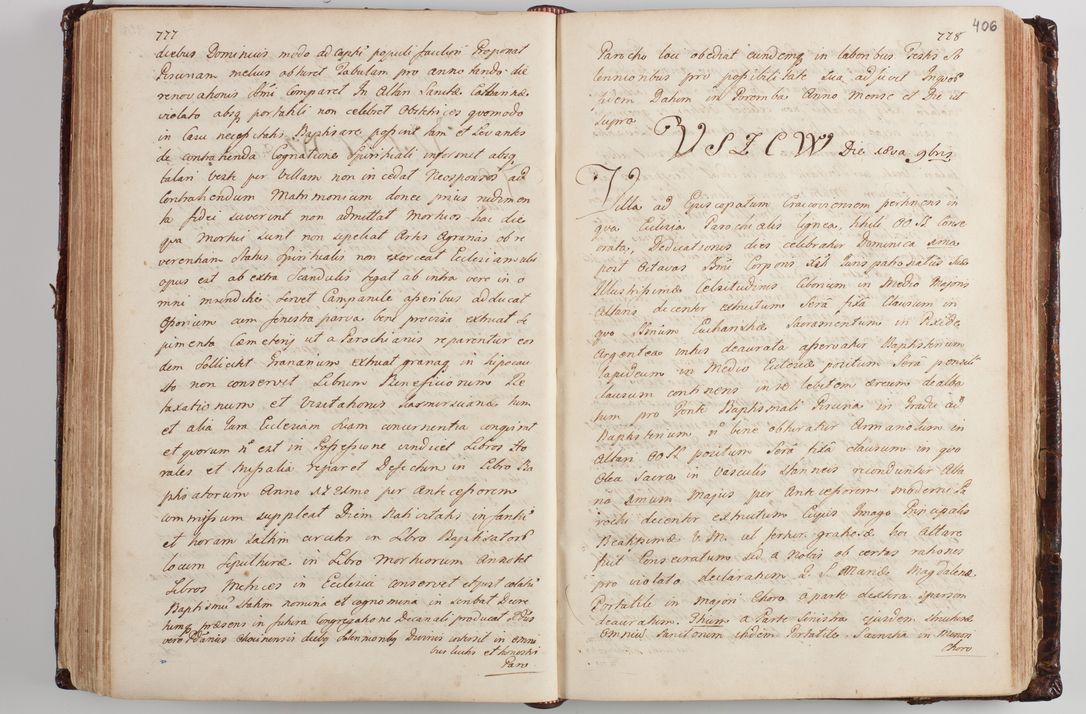 777
diebus Dominicis modo ad captũ populi faciliori Proponat
Piscinam melius obturet Tabulam pro anno tando die
renovationis SSmi comparet In Altari Sanctæ Catharinæ
violato absq portatili non celebret Obstetrices quomodo
in Casu necessitatis Baptisare possint tam et Levantes
de contrahenda Cognatione Spirituali informet absq
talari veste per villam non incedat Neosponsos ad
Contrahendum Matrimonium donec prius rudimen
ta fidei sciverint non admittat Mortuos hac die
qua Mortui sunt non sepeliat Artes Agrarias ob re
verentiam Status Spiritualis non exerceat Ecclesiam ubi
opus est ab extra Scandulis tegat ab intra vero in o
mni munditie Servet Campanile asseribus adducat
Ostorium cum fenestra parva bene precisa extruat Se
pimenta Cæmeterij ut a Parochianis reparentur eos
dem Sollicitet Granarium extruat grana in hipocau
sto non conservet Librum Beneficiorum Re
taxationum et Visitationis Kasmirsciana tum
et alia Jura Ecclesiam suam concernentia conquirat
et quorum n̄ est in Possessione vindicet Libros Ho
rales et Missalia reparet Defectum in Libro Ba
ptisatorum Anno 1727mo per Antecessorem
commissum suppleat Diem Nativitatis infantiũ
et horam saltim circiter in Libro Baptisatorũ
locum Sepulturæ in Libro Mortuorum Annotet
Libros Metrices in Ecclesia conservet et post collatũ
Baptismũ statim nomina et cognomina in scribat Decre
tumq præsens in futura Congregatione Decanali producat
vero diebq Solennionbq Divinis intersit in omni
bus licitis et honestis
Paro

406
778
Parocho loci obediat eundemq in laboribus Festis So
lennionibus pro possibilitate sua adjuvet In quor̃
fidem Datum in Poremba Anno Mense et Die ut
supra
USZCW Die 18va 9bris
Villa ad Episcopatum Cracoviensem pertinens in
qua Ecclesia Parochialis lignea tituli OO SS Conse
crata Dedicationis dies celebratur Dominica ima
post Octavas SSmi Corporis Xsti Juris patronatus Suæ
Illustrissimæ Celsitudinis Ciborium in Medio Majoris
Altaris decenter extructum Serâ fixâ Clausum in
quo SSmum Eucharistiæ Sacramentum in Pixide
Argentea intus deaurata asservatur Baptisterium
lapideum in Medio Ecclesiæ positum Serâ pensili
clausum continens in se lebetem æreum dealba
tum pro fonte Baptismali Piscina in Gradu ad
Baptisterium n̄ bene obturatur Armariolum in
Altari OO SS positum Serâ fixâ clausum in quo
Olea Sacra in vasculis stanneis reconduntur Alta
ria Imum Majus per Antecessorem moderni Pa
rochi decenter extructum Cujus Imago Principalis
Beatissimæ V M. ut fertur gratiosæ hoc Altare
fuit Consecratum sed a Nobis ob certas rationes
pro violato declaratum 2 S Mariæ Magdalenæ
Portatile in Majori Choro a parte dextera sparsim
deauratum. 3tium a Parte Sinistra ejusdem structuræ
Omnium Sanctorum itidem Portatile Sacristia in Minori
Choro